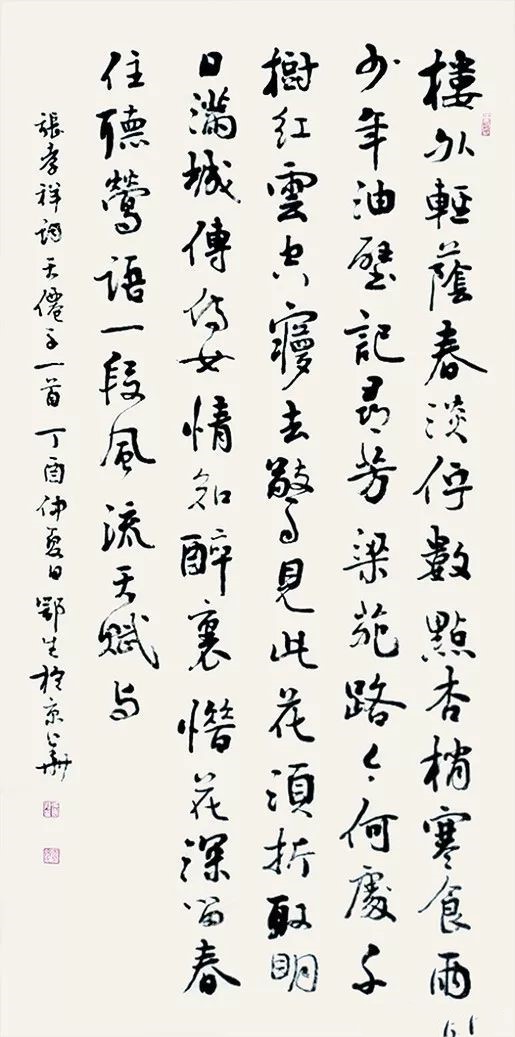 樓外輕蔭春淡佇數點杏梢寒食雨
少年油壁記尋芳梁苑路今何處千
樹紅雲空夢去驚見此花須折取明
日滿城傳侍女情知醉裏惜花深留春
住聽鶯語一段風流天賦與
張孝祥詞天僊子一首丁酉仲夏日鄂生於京華